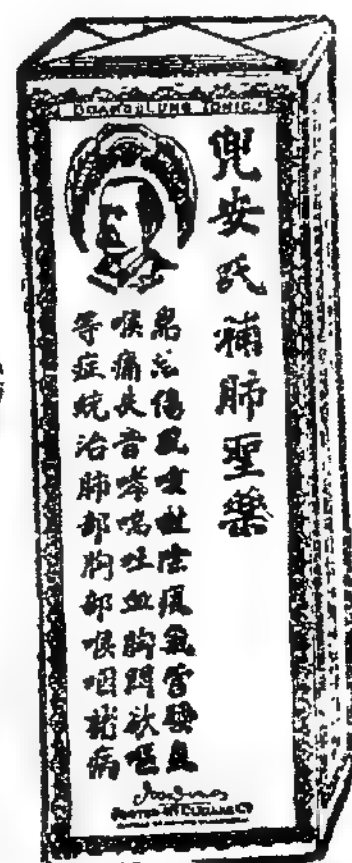 DOAN'S LUNG TONIC
兜安氏補肺聖藥
傷風咳吐痰氣管發炎
喉痛失音哮喘吐血胸悶欲嘔
等症統治肺部胸部喉咽諸病
FOSTER McCLELLAN CO